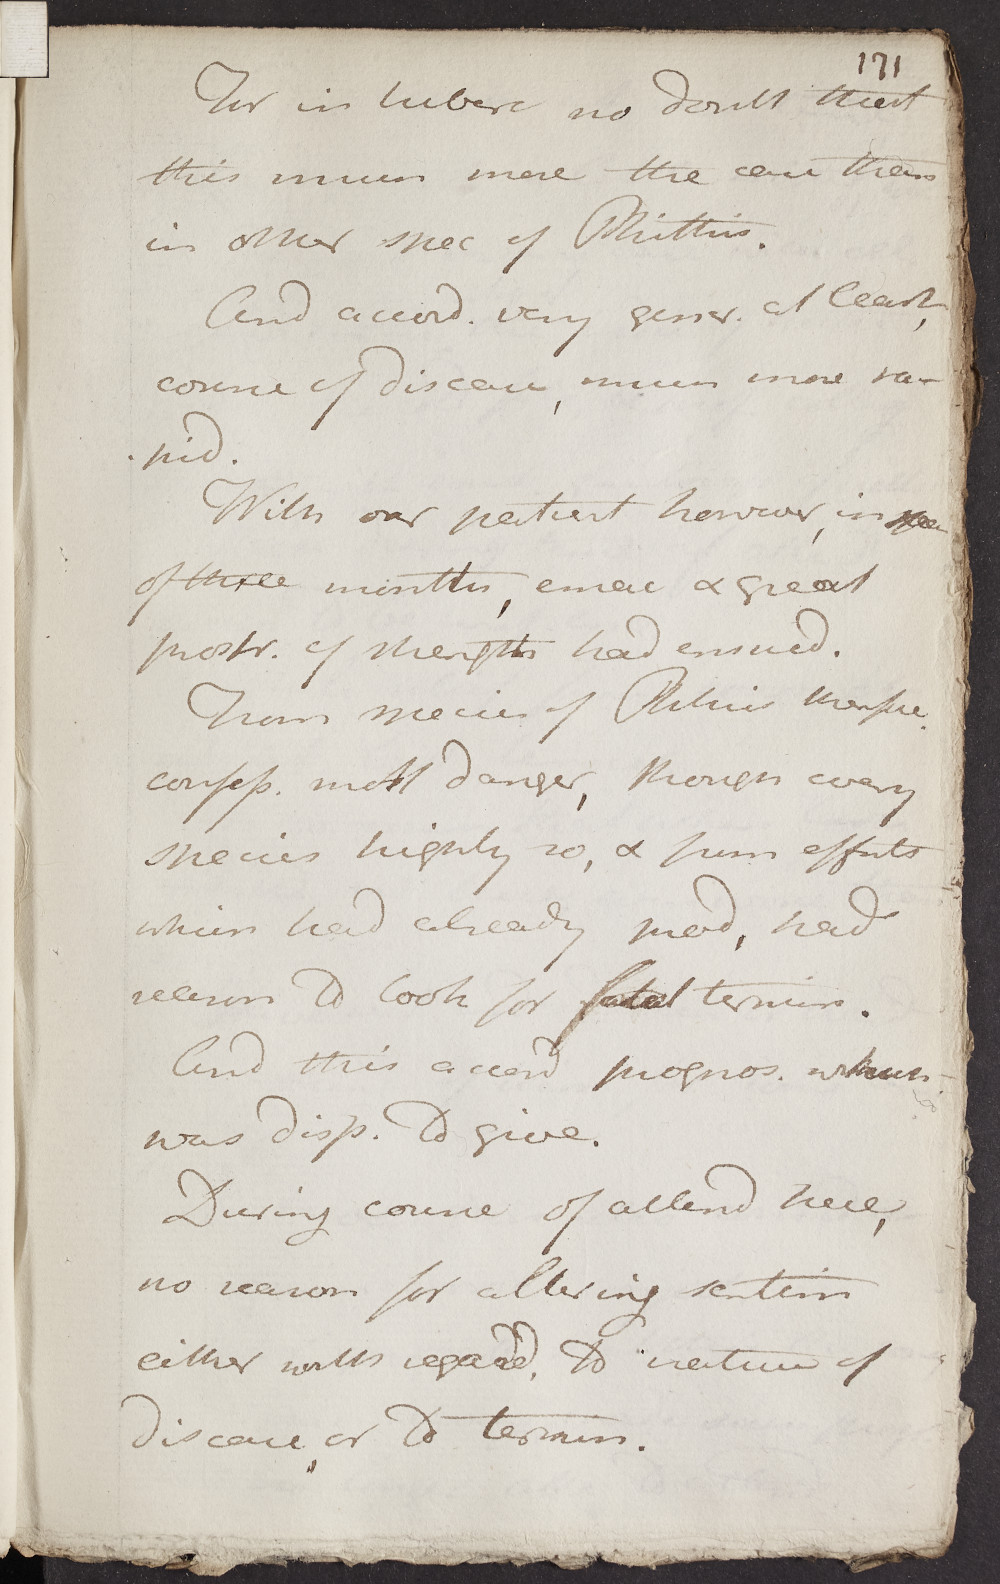 171
For in tuberc no doubt that
this much more the case than
in other spec of Phthisis.
And accord. very gener. at least,
course of disease, much more ra-
pid.
With our patient however, in
of three months, emac & great
prostr. of strength had ensued.
From species of Phthisis therefre.
most danger, though every
species highly so, & from effects
which had already prod, had
reason to look for fatal termin.
And this accord prognos. which
was disp. to give.
During course of attend here,
no reason for altering sentim
either with regard. to nature of
disease, or to termin.